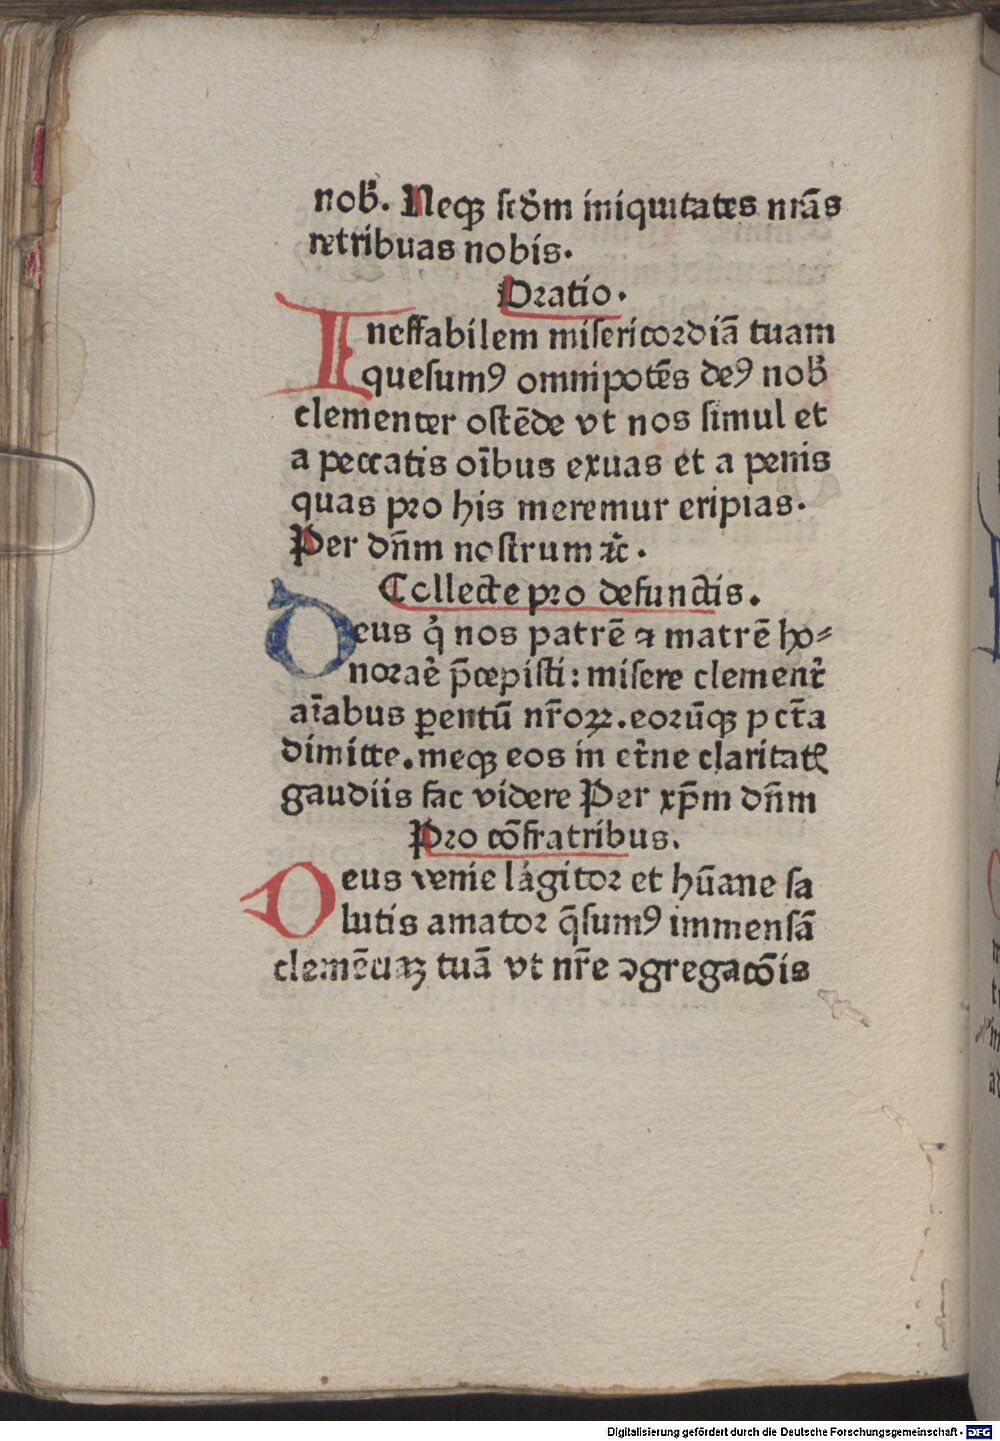 nob̃. Neqꝫ scd̓m iniquitates nr̄as
retribuas nobis.
Oratio.
Ineffabilem misericordiā tuam
quesumꝰ omnipotēs deꝰ nob̃
clementer ostēde vt nos simul et
a peccatis oībus exuas et a penis
quas pro his meremur eripias.
Per dn̄m nostrum ⁊c̓.
Collecte pro defunctis.
Deus q̓ nos patrē ⁊ matrē ho⸗
norar̓e p̄cepisti: miserere clement̓
aīabus ꝑentū nr̄oꝝ. eorūqꝫ pct̄a
dimitte. meqꝫ eos in et̓ne claritatꝭ
gaudiis fac videre Per xp̄m dn̄m
Pro cōfratribus.
Deus venie lar̓gitor et hūane sa
lutis amator q̄sumꝰ immensā
clemēciaꝫ tuā vt nr̄e ꝯgregacōis
Digitalisierung gefördert durch die Deutsche Forschungsgemeinschaft - DFG